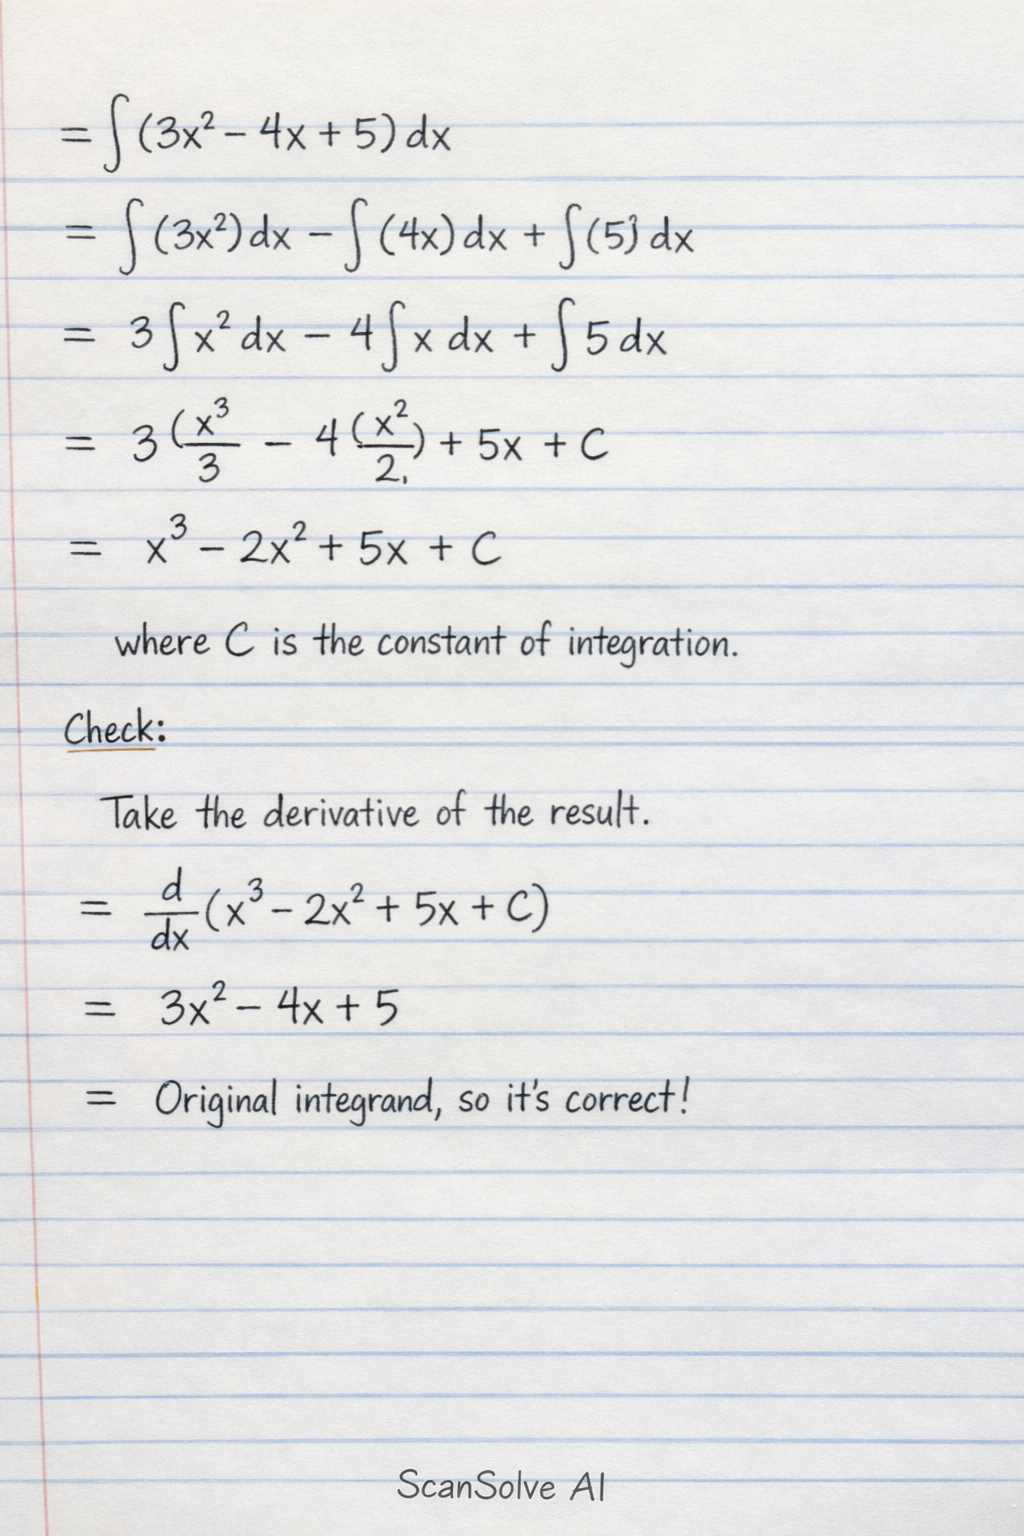 = ∫(3x² − 4x + 5) dx
= ∫(3x²) dx − ∫(4x) dx + ∫(5) dx
= 3∫x² dx − 4∫x dx + ∫5 dx
= 3(x³/3 − 4(x²/2) + 5x + C
= x³ − 2x² + 5x + C
where C is the constant of integration.
Check:
Take the derivative of the result.
= d/dx (x³ − 2x² + 5x + C)
= 3x² − 4x + 5
= Original integrand, so it's correct!
ScanSolve AI